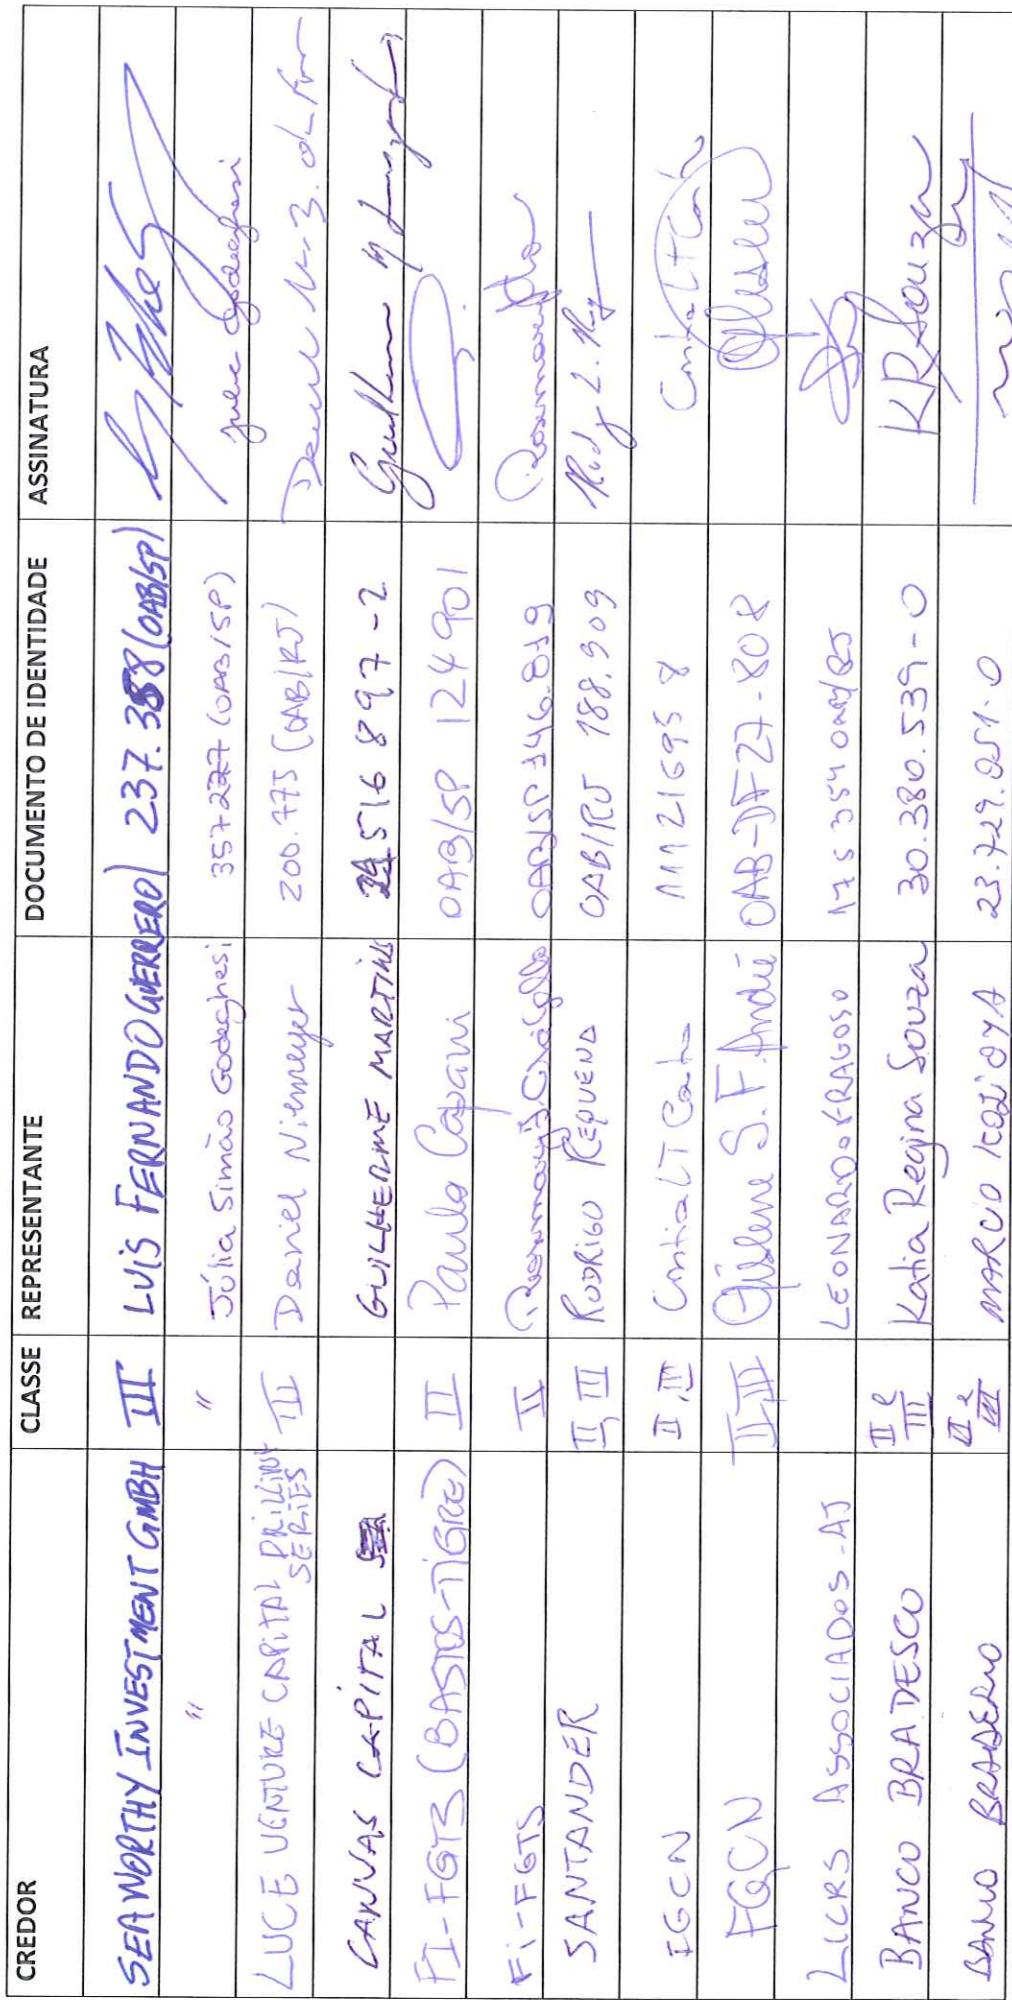 CREDOR CLASSE REPRESENTANTE DOCUMENTO DE IDENTIDADE ASSINATURA
SEAWORTHY INVESTMENT GMBH III LUIS FERNANDO GUERRERO 237.388 (OAB/SP)
" " Júlia Simão Godeghesi 357227 (OAB/SP)
LUCE VENTURE CAPITAL DRILLING SERIES III Daniel Niemeyer 200.775 (OAB/RJ)
CANVAS CAPITAL GUILHERME MARTINS 516 897-2
FI-FGTS (BASTOS-TIGRE) II Paula Capani OAB/SP 124 901
Fi-FGTS II OAB/SP 346.819
SANTANDER II, III RODRIGO REQUENA OAB/RJ 188.909
FGCN II, III Cintia LT Cato 11121695 8
FGCN II, III Gislene S. F. André OAB-DF 27.808
LICKS ASSOCIADOS - AJ LEONARDO FRAGOSO 175 354 OAB/RJ
BANCO BRADESCO II e III Katia Regina Souza 30.380.539-0 KRSouza
BANCO BRADESCO II e III MARCO 23.729.051-0